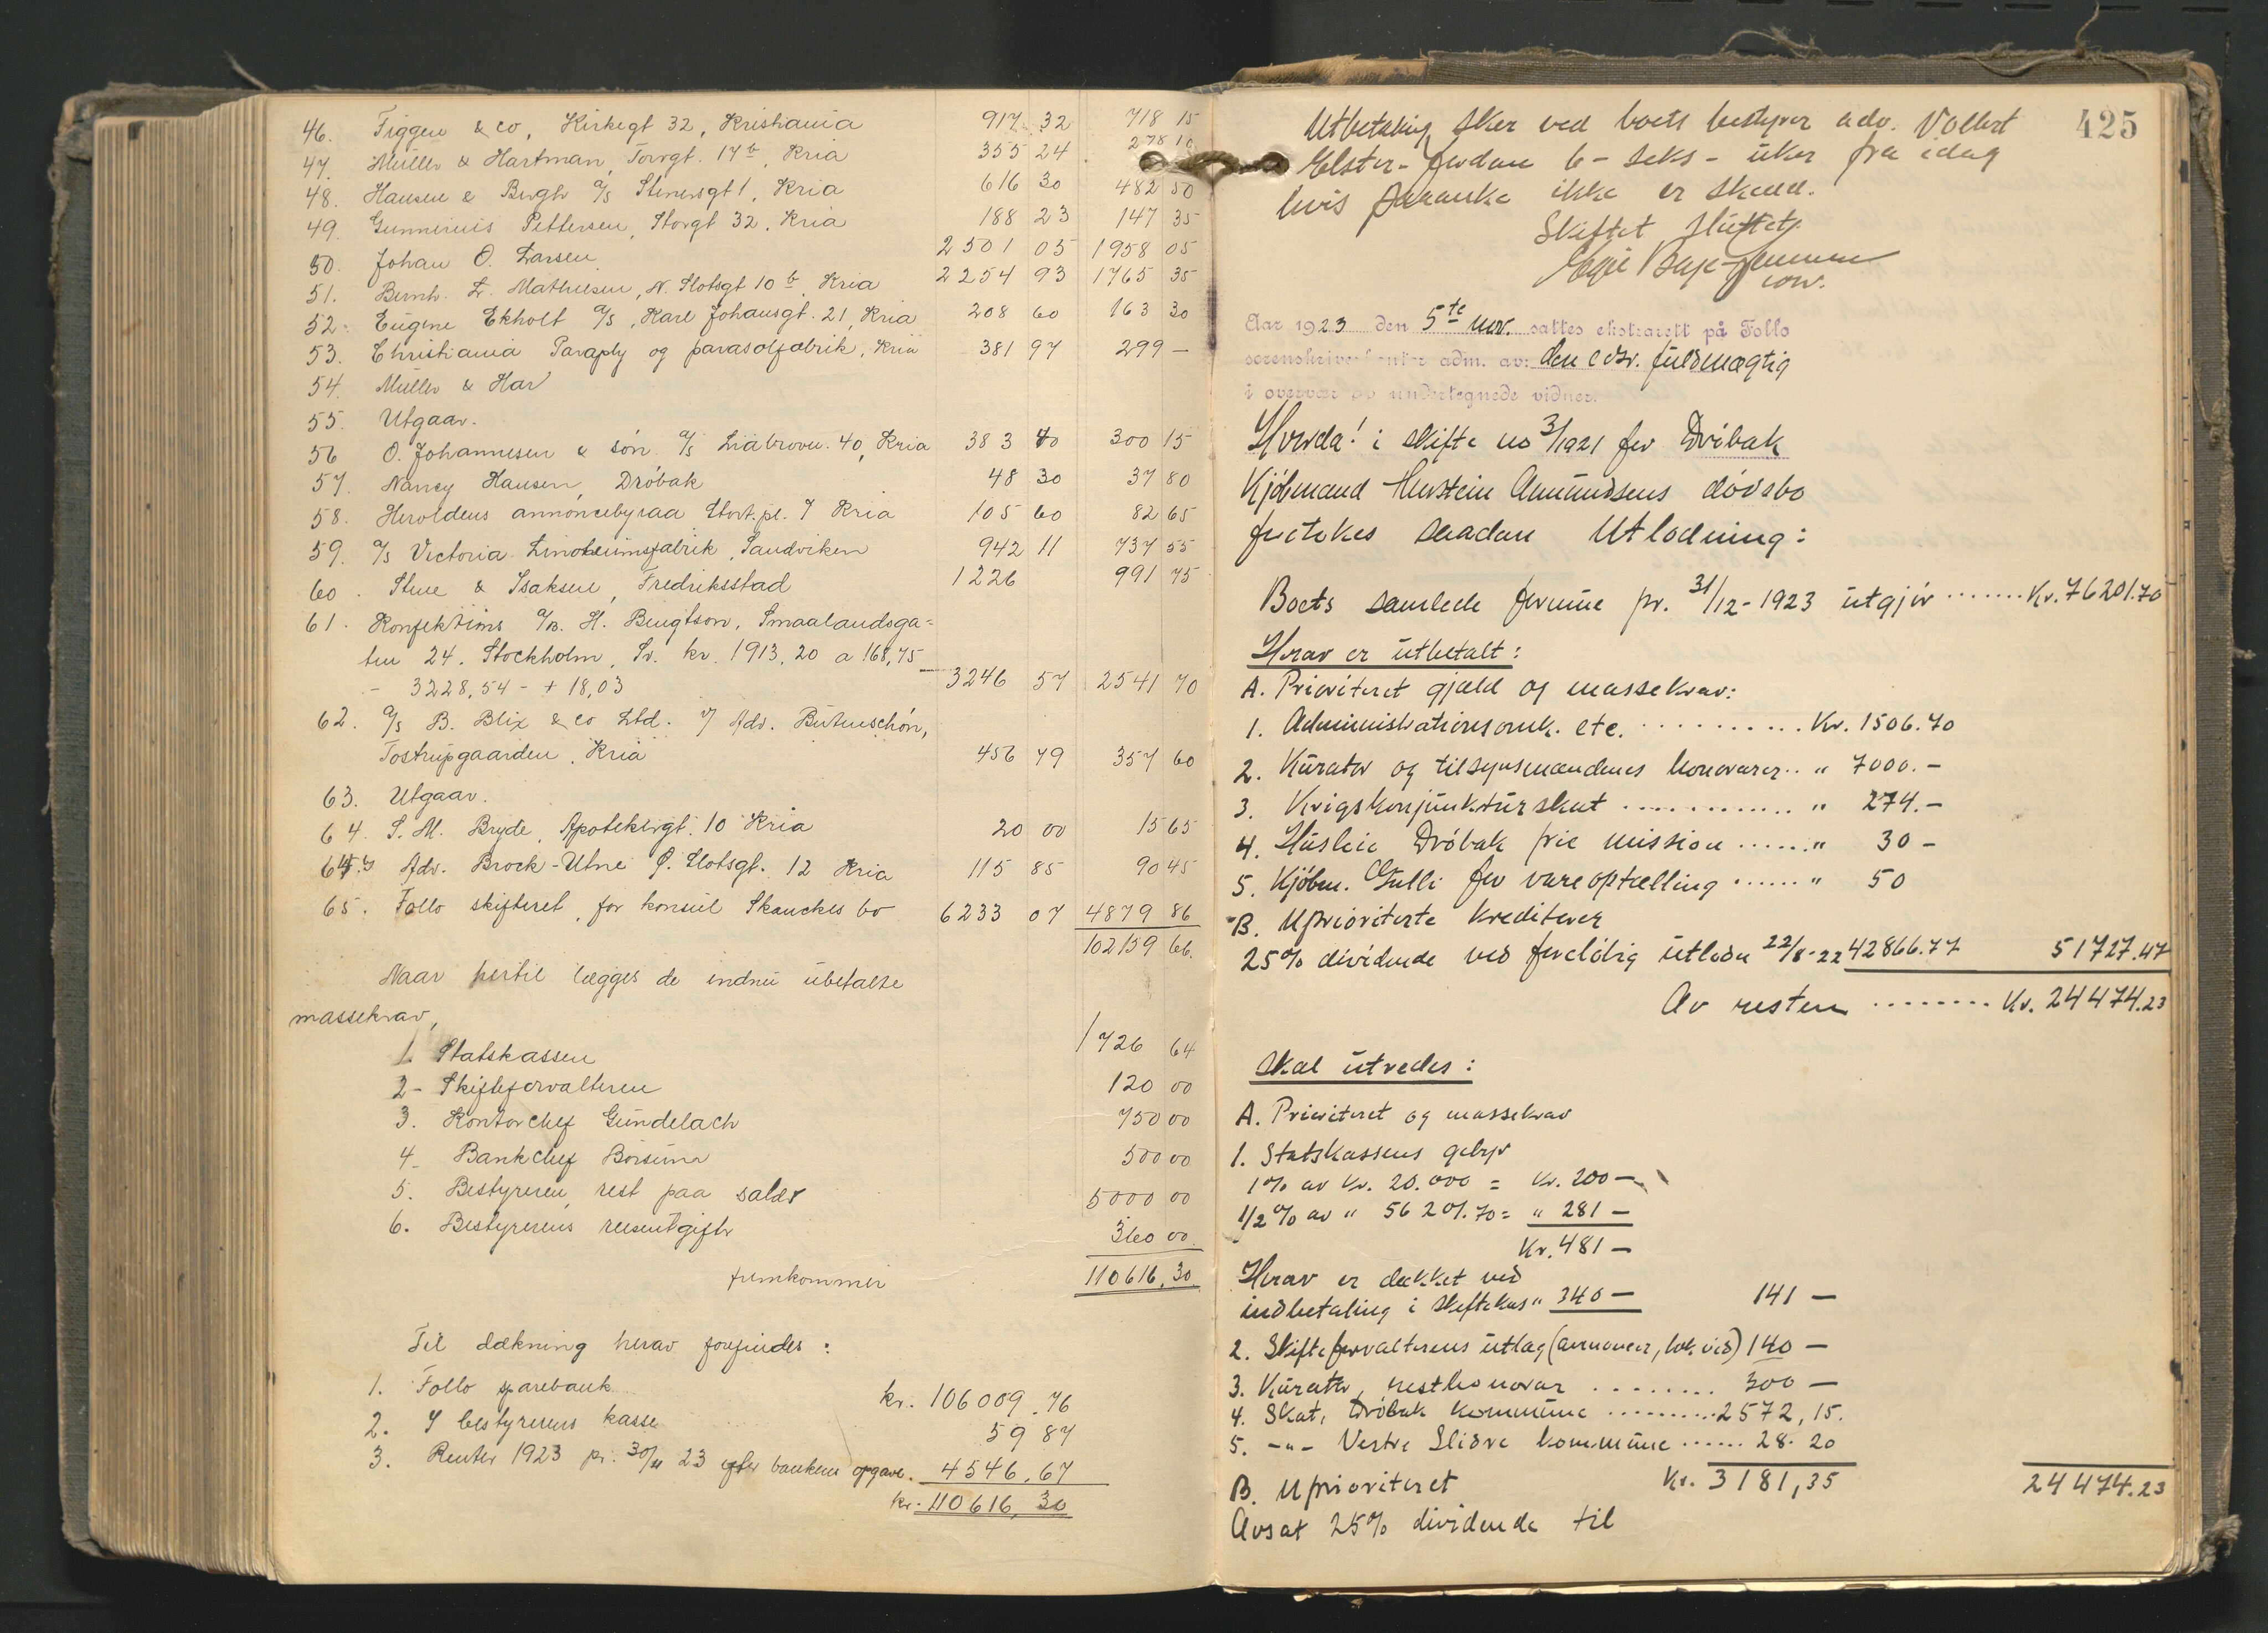 46. Figgen & co, Kirkegt 32, Kristiania 917 32 718 15
47. Müller & Hartman, Torvgt. 17b, Kria 355 24 278 10
48. Hansen & Bergh A/s Stenersgt 1, Kria 616 30 482 50
49. Gunnerius Pettersen, Storgt 32, Kria 188 23 147 35
50. Johan O. Larsen 2501 05 1958 05
51. Bernh. L. Mathiesen, N. Slotsgt 10b, Kria 2254 93 1765 35
52. Eugene Ekholt A/s, Karl Johansgt. 21, Kria 208 60 163 30
53. Christiania Paraply og parasolfabrik, Kria 381 97 299 —
54. Müller & Har
55. Utgaar.
56 O. Johannesen & søn A/s Liabroven. 40, Kria 383 40 300 15
57. Nancy Hansen, Drøbak 48 30 37 80
58. Heroldens annoncebyraa Stort.pl. 7 Kria 105 60 82 65
59. A/s Victoria Linoleumsfabrik, Sandviken 942 11 737 55
60. Stene & Isaksen, Fredriksstad 1226 991 75
61. Konfektions A/B. H. Bengtson, Smaalandsga-
ten 24. Stockholm, Sv. kr. 1913,20 a 168,75
- 3228,54 - + 18,03 3246 57 2541 70
62. A/s B. Blix & co Ltd. v/ Adv. Butenschøn,
Tostrupgaarden, Kria 456 79 357 60
63. Utgaar.
64. S. M. Bryde, Apotekergt. 10 Kria 20 00 15 65
64.b Adv. Brock-Utne Ø. Slotsgt. 12 Kria 115 85 90 45
65. Follo skifteret, for konsul Skanckes bo 6233 07 4879 86
102159 66.
Naar hertil lægges de endnu ubetalte
massekrav,
1. Statskassen 1726 64
2- Skifteforvalteren 120 00
3. Kontorchef Gundelach 750 00
4- Bankchef Borsum 500 00
5. Bestyreren, rest paa salær 5000 00
6. Bestyrerens reiseutgifter 360 00
fremkommer 110616,30
Til dækning herav forefindes:
1. Follo sparebank kr. 106009.76
2. I bestyrerens kasse 59 87
3. Renter 1923 pr. 30/11 23 efter bankens opgave. 4546,67
kr. 110616,30
425
Utbetaling sker ved boets bestyrer adv. Vollert
Elster- fordan 6 - seks - uker fra idag
hvis paaanke ikke er skeed.
Skiftet sluttet.
Aar 1923 den 5te nov. sattes ekstrarett på Follo
sorenskriverkontor adm. av: den edsv. fuldmægtig
i overvær av undertegnede vidner.
Hvorda! i skifte no 3/1921 for Drøbak
Kjøbmand Herstein Amundsens dødsbo
foretokes saadan Utlodning:
Boets samlede formue pr. 31/12-1923 utgjør ....... Kr. 76201.70
Herav er utbetalt:
A. Prioriteret gjæld og massekrav:
1. Administrationsomk. etc. .......... Kr. 1506.70
2. Kurator og tilsynsmændenes honorarer.. " 7000.-
3. Krigskonjunkturskat ............. " 274.-
4. Husleie Drøbak frie mission ...... " 30 -
5. Kjøbm. Gulli for vareoptælling ...... " 50
B. Uprioriterte kreditorer
25% dividende ved foreløbig utlodn 22/8-22 42866.77 51727.47
Av resten ........ Kr. 24474.23
skal utredes:
A. Prioriteret og massekrav
1. Statskassens gebyr
1% av Kr. 20.000 = Kr. 200 —
1/2% av " 56201.70 = " 281 —
Kr. 481 —
Herav er dækket ved
indbetaling i skiftekas " 340 — 141 —
2. Skifteforvalterens utlæg (annoncer, lok. vid) 140 —
3. Kurator, resthonorar ........ 300 —
4. Skat, Drøbak kommune .......... 2572,15.
5. -"- Vestre Slidre kommune ...... 28.20
B. Uprioriteret Kr. 3181,35 24474.23
Avsat 25% dividende til